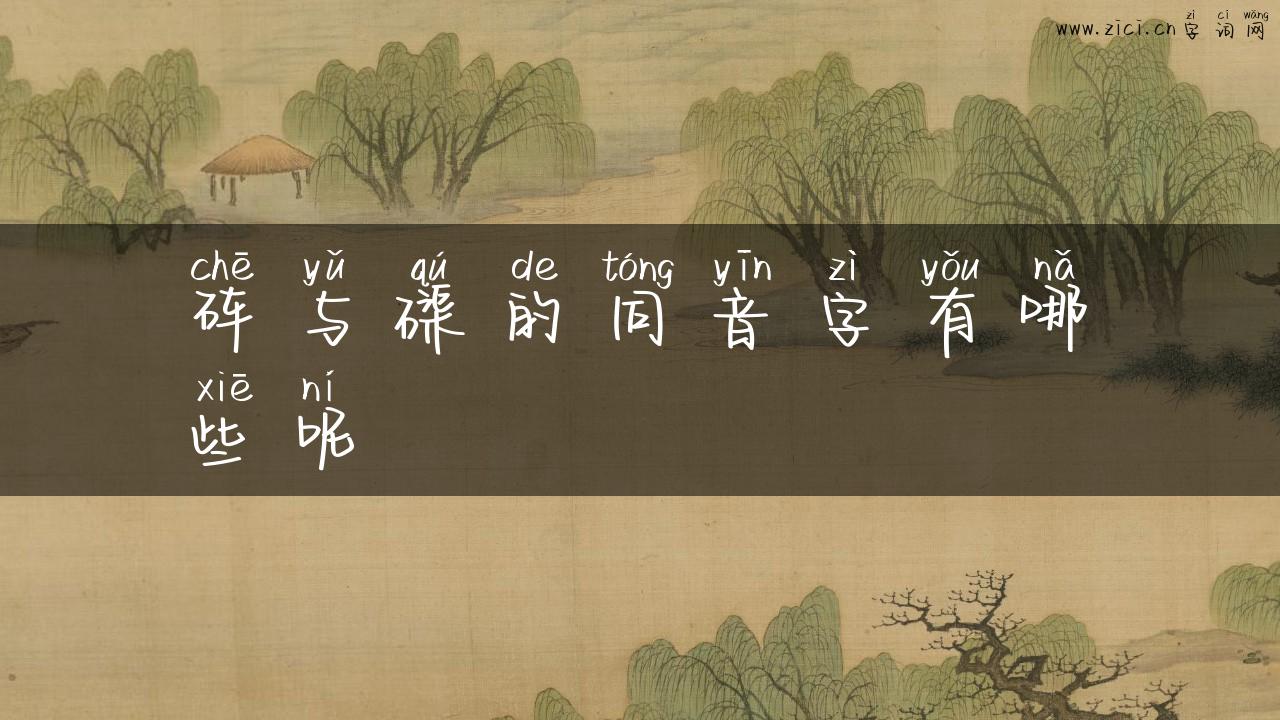 zì cí wǎng
www.zici.cn 字词网
chē yǔ qú de tóng yīn zì yǒu nǎ
砗与磲的同音字有哪
xiē ní
些呢